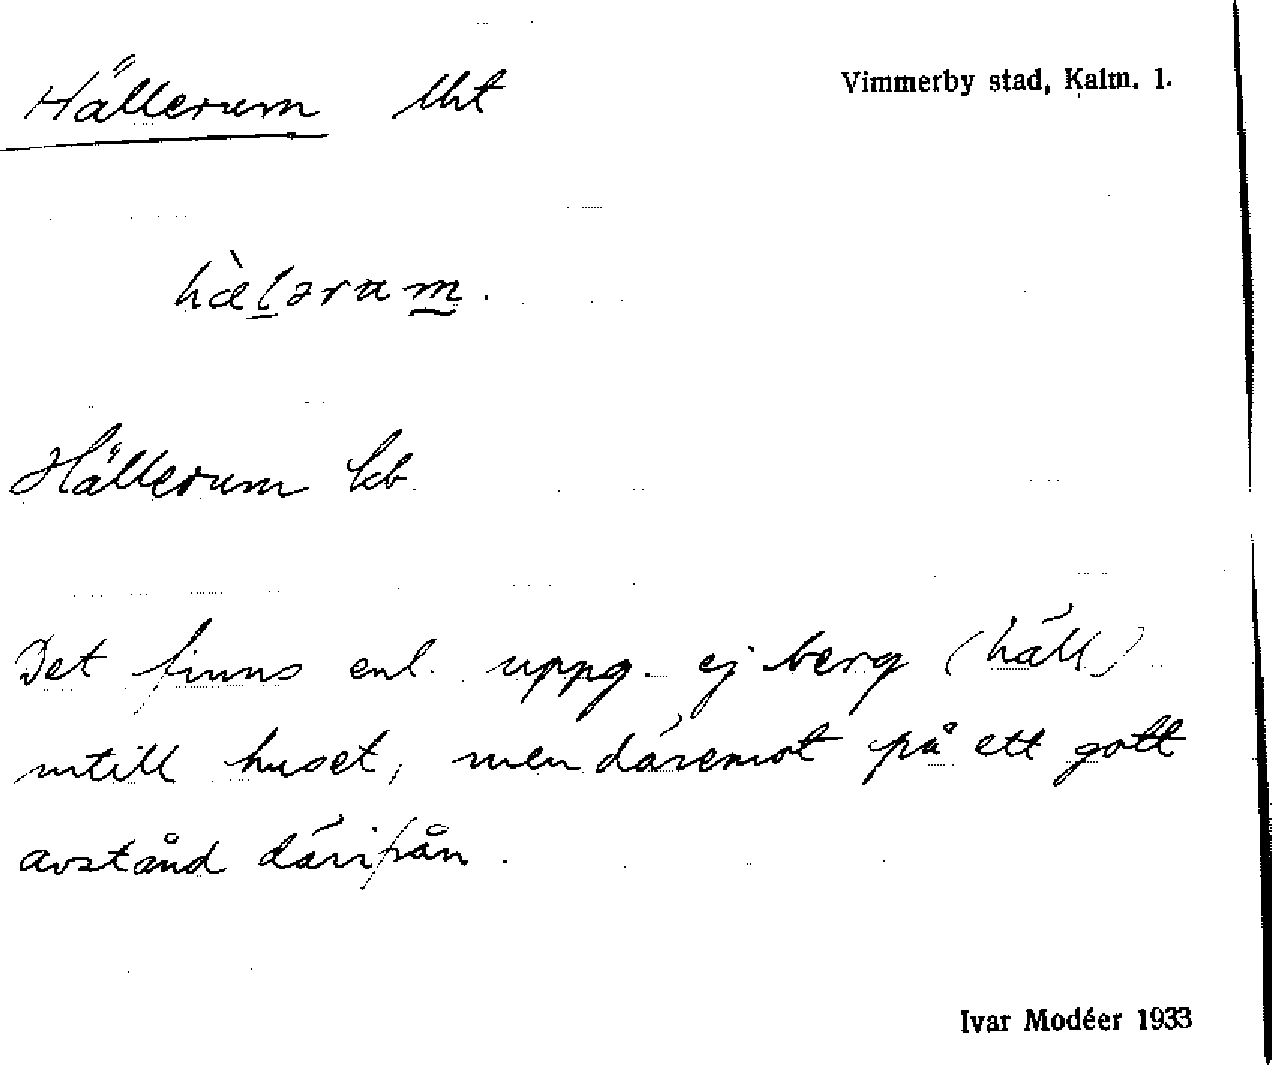 Hällerum lht
Vimmerby stad, Kalm. l.
hæ̀l̠əram̠.
Hällerum kb
Det finns enl. uppg. ej berg (häll)
intill huset, men däremot på ett gott
avstånd därifrån.
Ivar Modéer 1933